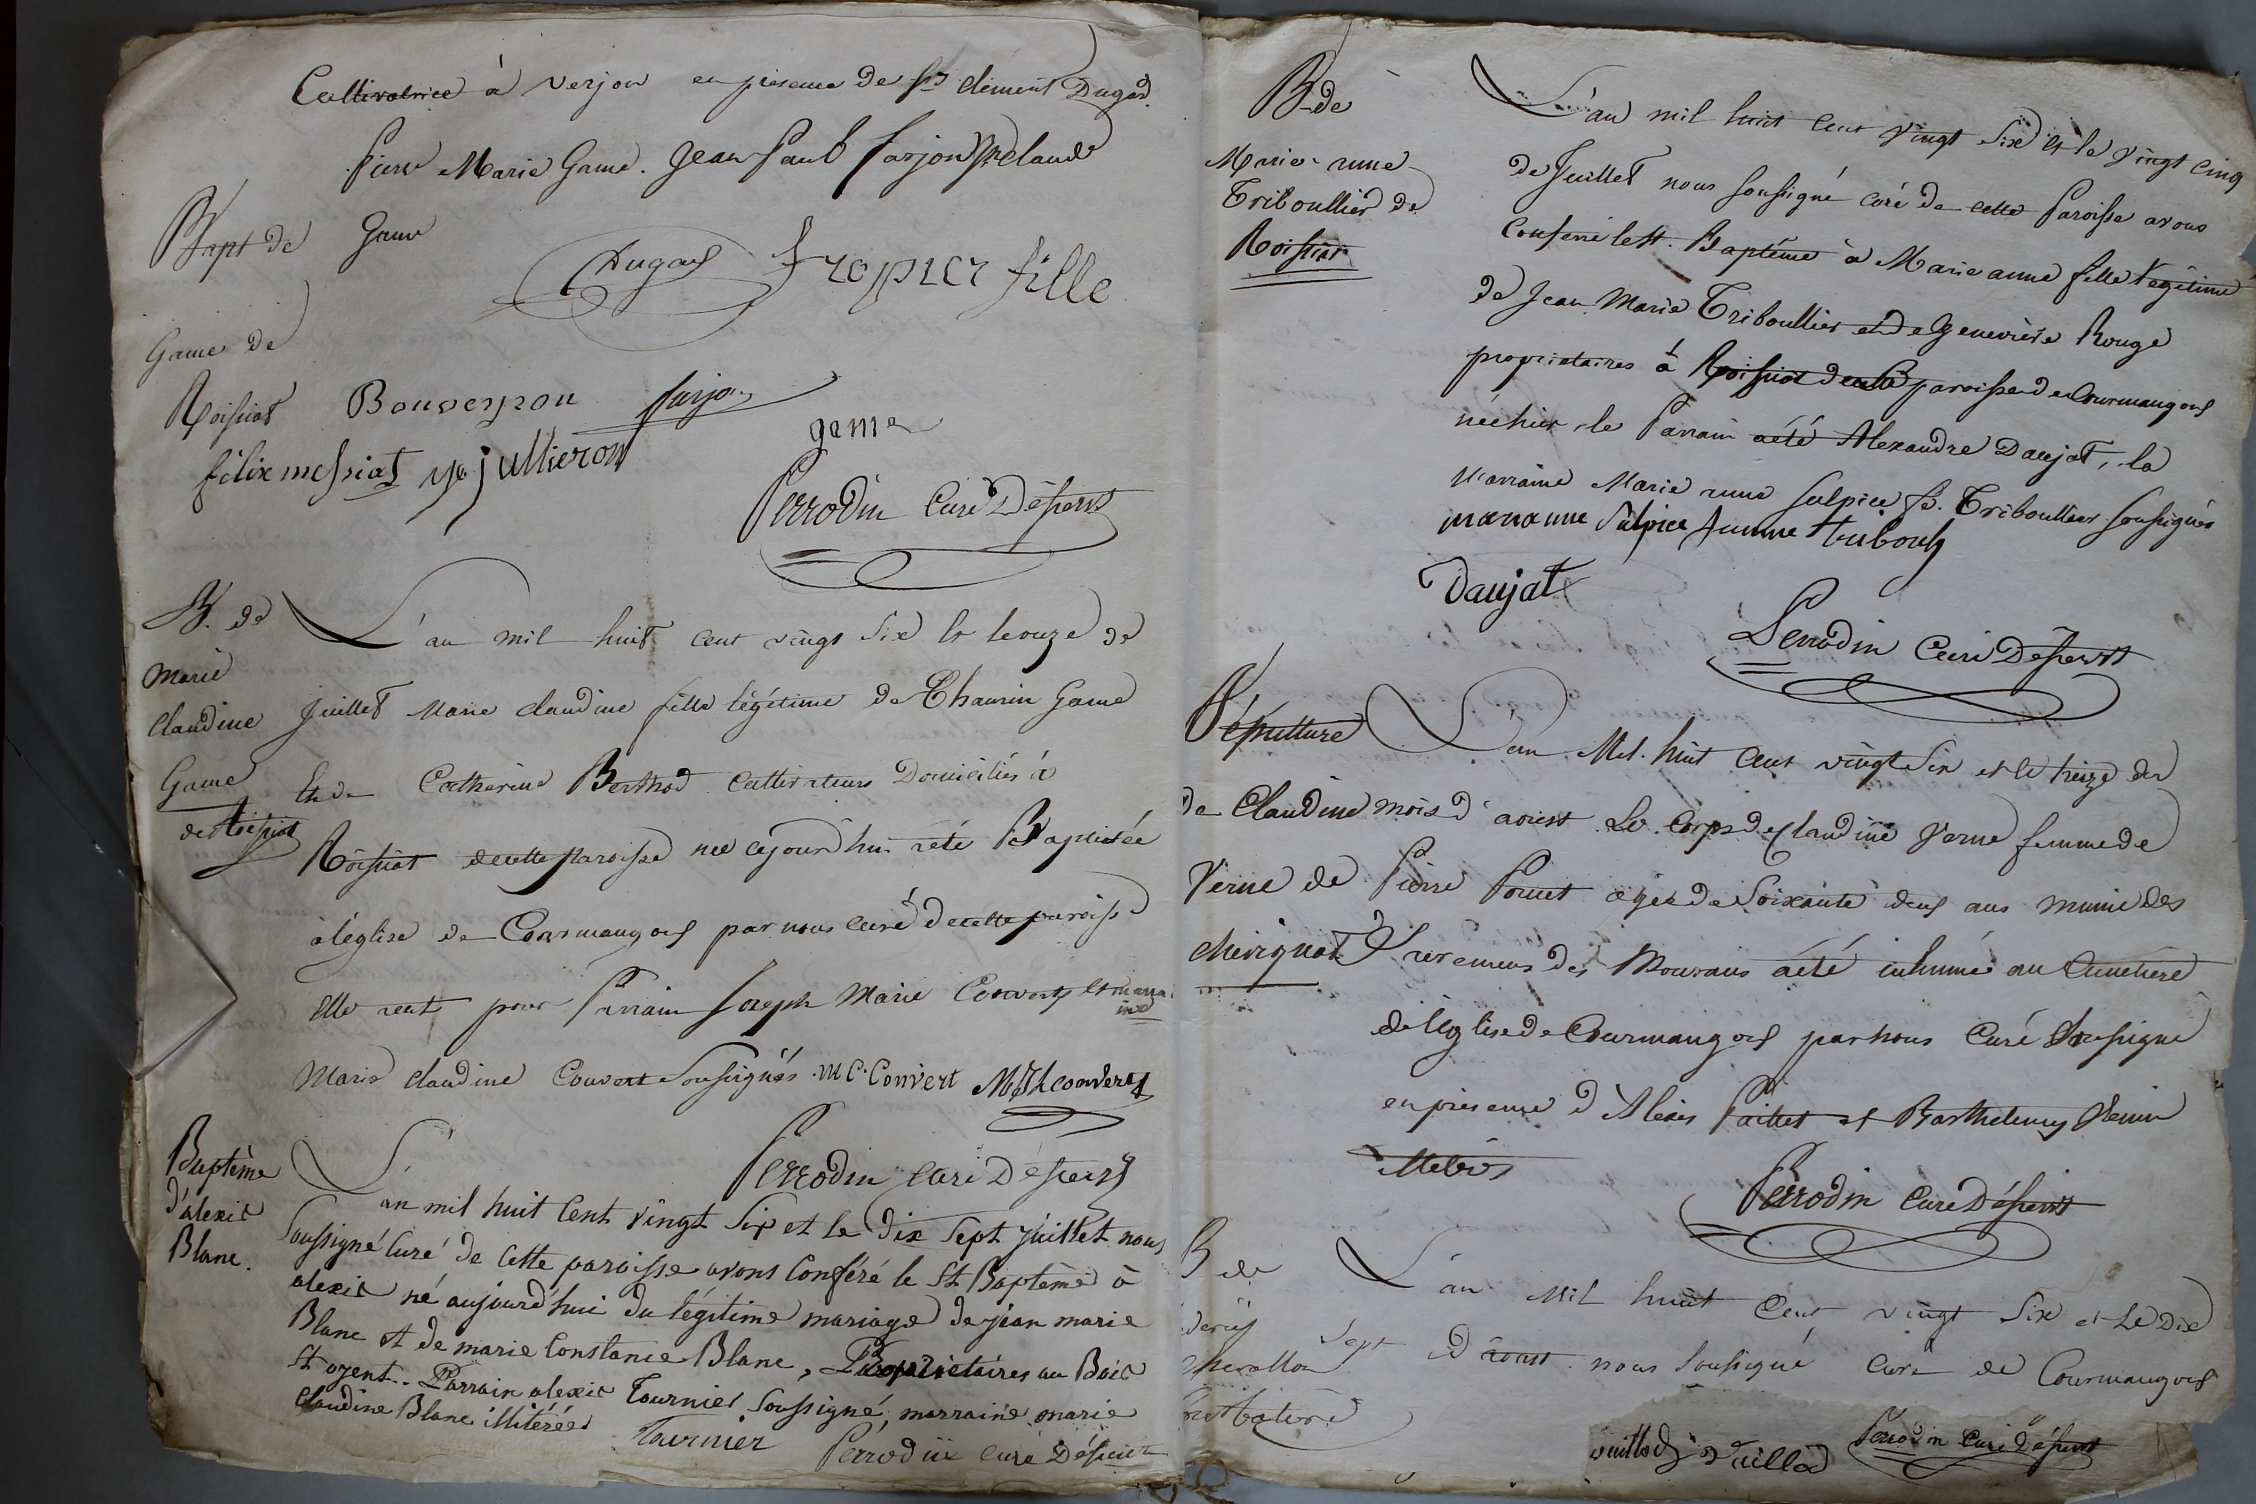 Cultivatrice à Verjon en présence de Sr clément Dugad.
pierre Marie Game. Jean Paul farjon Claude
Bapt de Game
Dugad Tropier fille
Game de
Roissiat Bouveyron farjon
game
félix messiat jullieron
Perrodin Curé Dessert
B. de L'an mil huit cent vingt six le le onze de
Marie
claudine juillet Marie claudine fille légitime de Thaurin Game
Game Et de Catherine Berthod cultivateurs Domiciliés à
de Roissiat
Roissiat de cette paroisse née cejourd'hui a été Baptisée
à l'église de Courmangoux par nous curé de cette paroisse
Elle a eut pour Parrain Joseph Marie Convert et marraine
Marie claudine Convert Soussignés. MC. Convert MJh convert
Perrodin curé Dessert
Baptême
d'alexis
Blanc.
L'an mil huit Cent vingt Six et le Dix Sept juillet nous
Soussigné Curé de Cette paroisse avons Conféré le St Baptême à
alexis né aujourd'hui du légitime mariage de jean marie
Blanc et de marie Constance Blanc, Propriétaires au Bois
St ozent.. Parrain alexis Tournier Soussigné, marraine marie
Claudine Blanc illitérée Tournier Perrodin curé Dessert
B de
Marie anne
Triboullier de
Roissiat
L'an mil huit cent vingt Six et le vingt cinq
de Juillet nous soussigné curé de cette Paroisse avons
Conféré le St. Baptême à Marie anne fille légitime
de Jean Marie Triboullier et de Genevière Rouge
propriétaires à Roissiat de cette paroisse de Courmangoux
née hier, le Parrain a été Alexandre Daujat, la
Marraine Marie anne Sulpice fe. Triboullier soussignés
marianne Sulpice femme triboull
Daujat
Perrodin Curé Dessert
Sépulture L'an Mil huit Cent vingt Six et le treize du
de Claudine mois d'aoust Le Corps de Claudine Verne femme de
Verne de Pierre Ponet agée de Soixante deux ans munie des
chevignat Sacremens des Mourans a été inhumé au Cimetière
de l'église de Courmangoux par nous Curé soussigné
en présence d'Alexis Paillet et Barthelemy
Perrodin Curé Dessert
B de L'an Mil huit Cent vingt Six et Le Dix
Sept d'aoust nous soussigné Curé de Courmangoux
Perrodin Curé Dessert